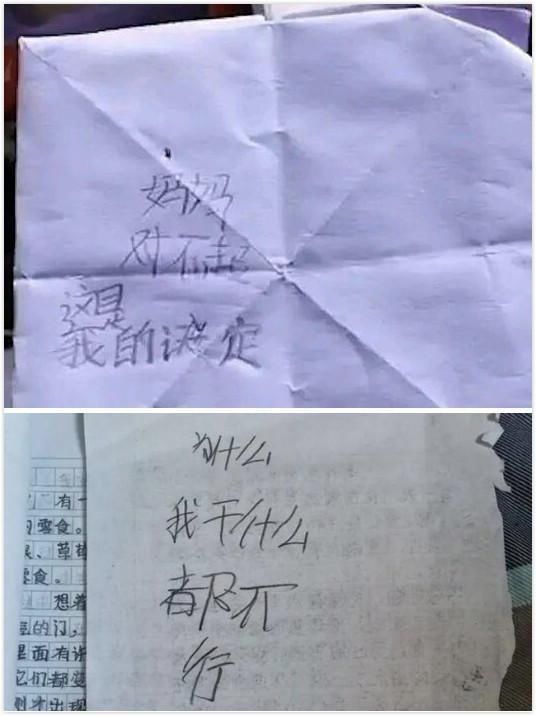 妈妈
对不起
这是
我的诀定
为什么
我干什么
都不
行
有一
零食。
、草莓
零食。
想着
的门,
里面有许
它们都变
出现